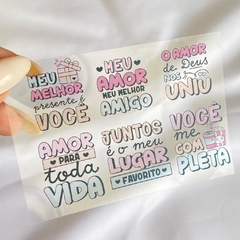 MEU
MELHOR
presente é
VOCÊ
MEU
AMOR
MEU MELHOR
AMIGO
O AMOR
de Deus
NOS
UNIU
AMOR
PARA
toda
VIDA
JUNTOS
é o meu
LUGAR
FAVORITO
VOCÊ
me
COM
PLETA